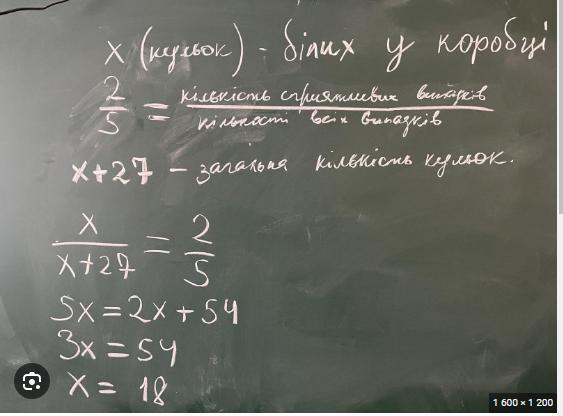 x (кульок) - білих у коробці
2/5 = кількість сприятливих випадків / кількості всіх випадків
x+27 – загальна кількість кульок.
x/(x+27) = 2/5
5x = 2x + 54
3x = 54
x = 18
1 600 × 1 200